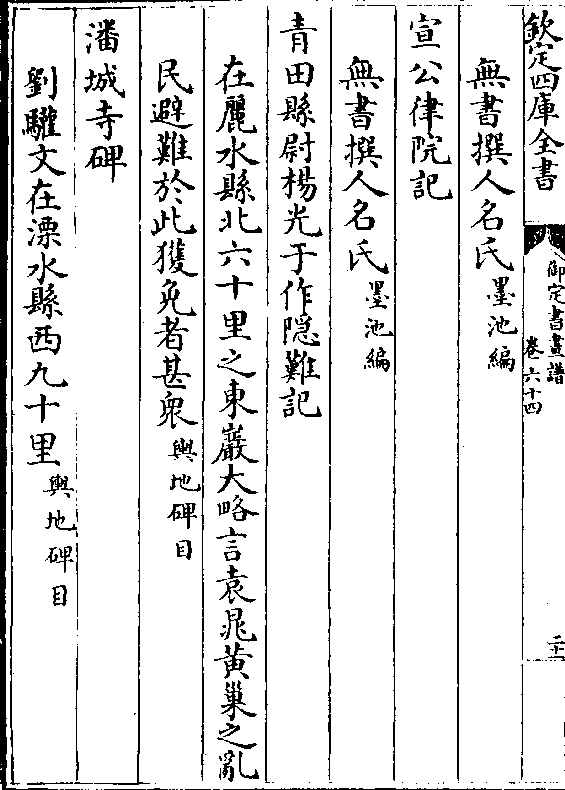 欽定四庫全書
御定書畫譜
卷六十四
二十一
無書撰人名氏墨池編
宣公律院記
無書撰人名氏墨池編
青田縣尉楊光于作隠難記
在麗水縣北六十里之東巖大略言袁晁黄巢之亂
民避難於此獲免者甚衆輿地碑目
潘城寺碑
劉驩文在溧水縣西九十里輿地碑目